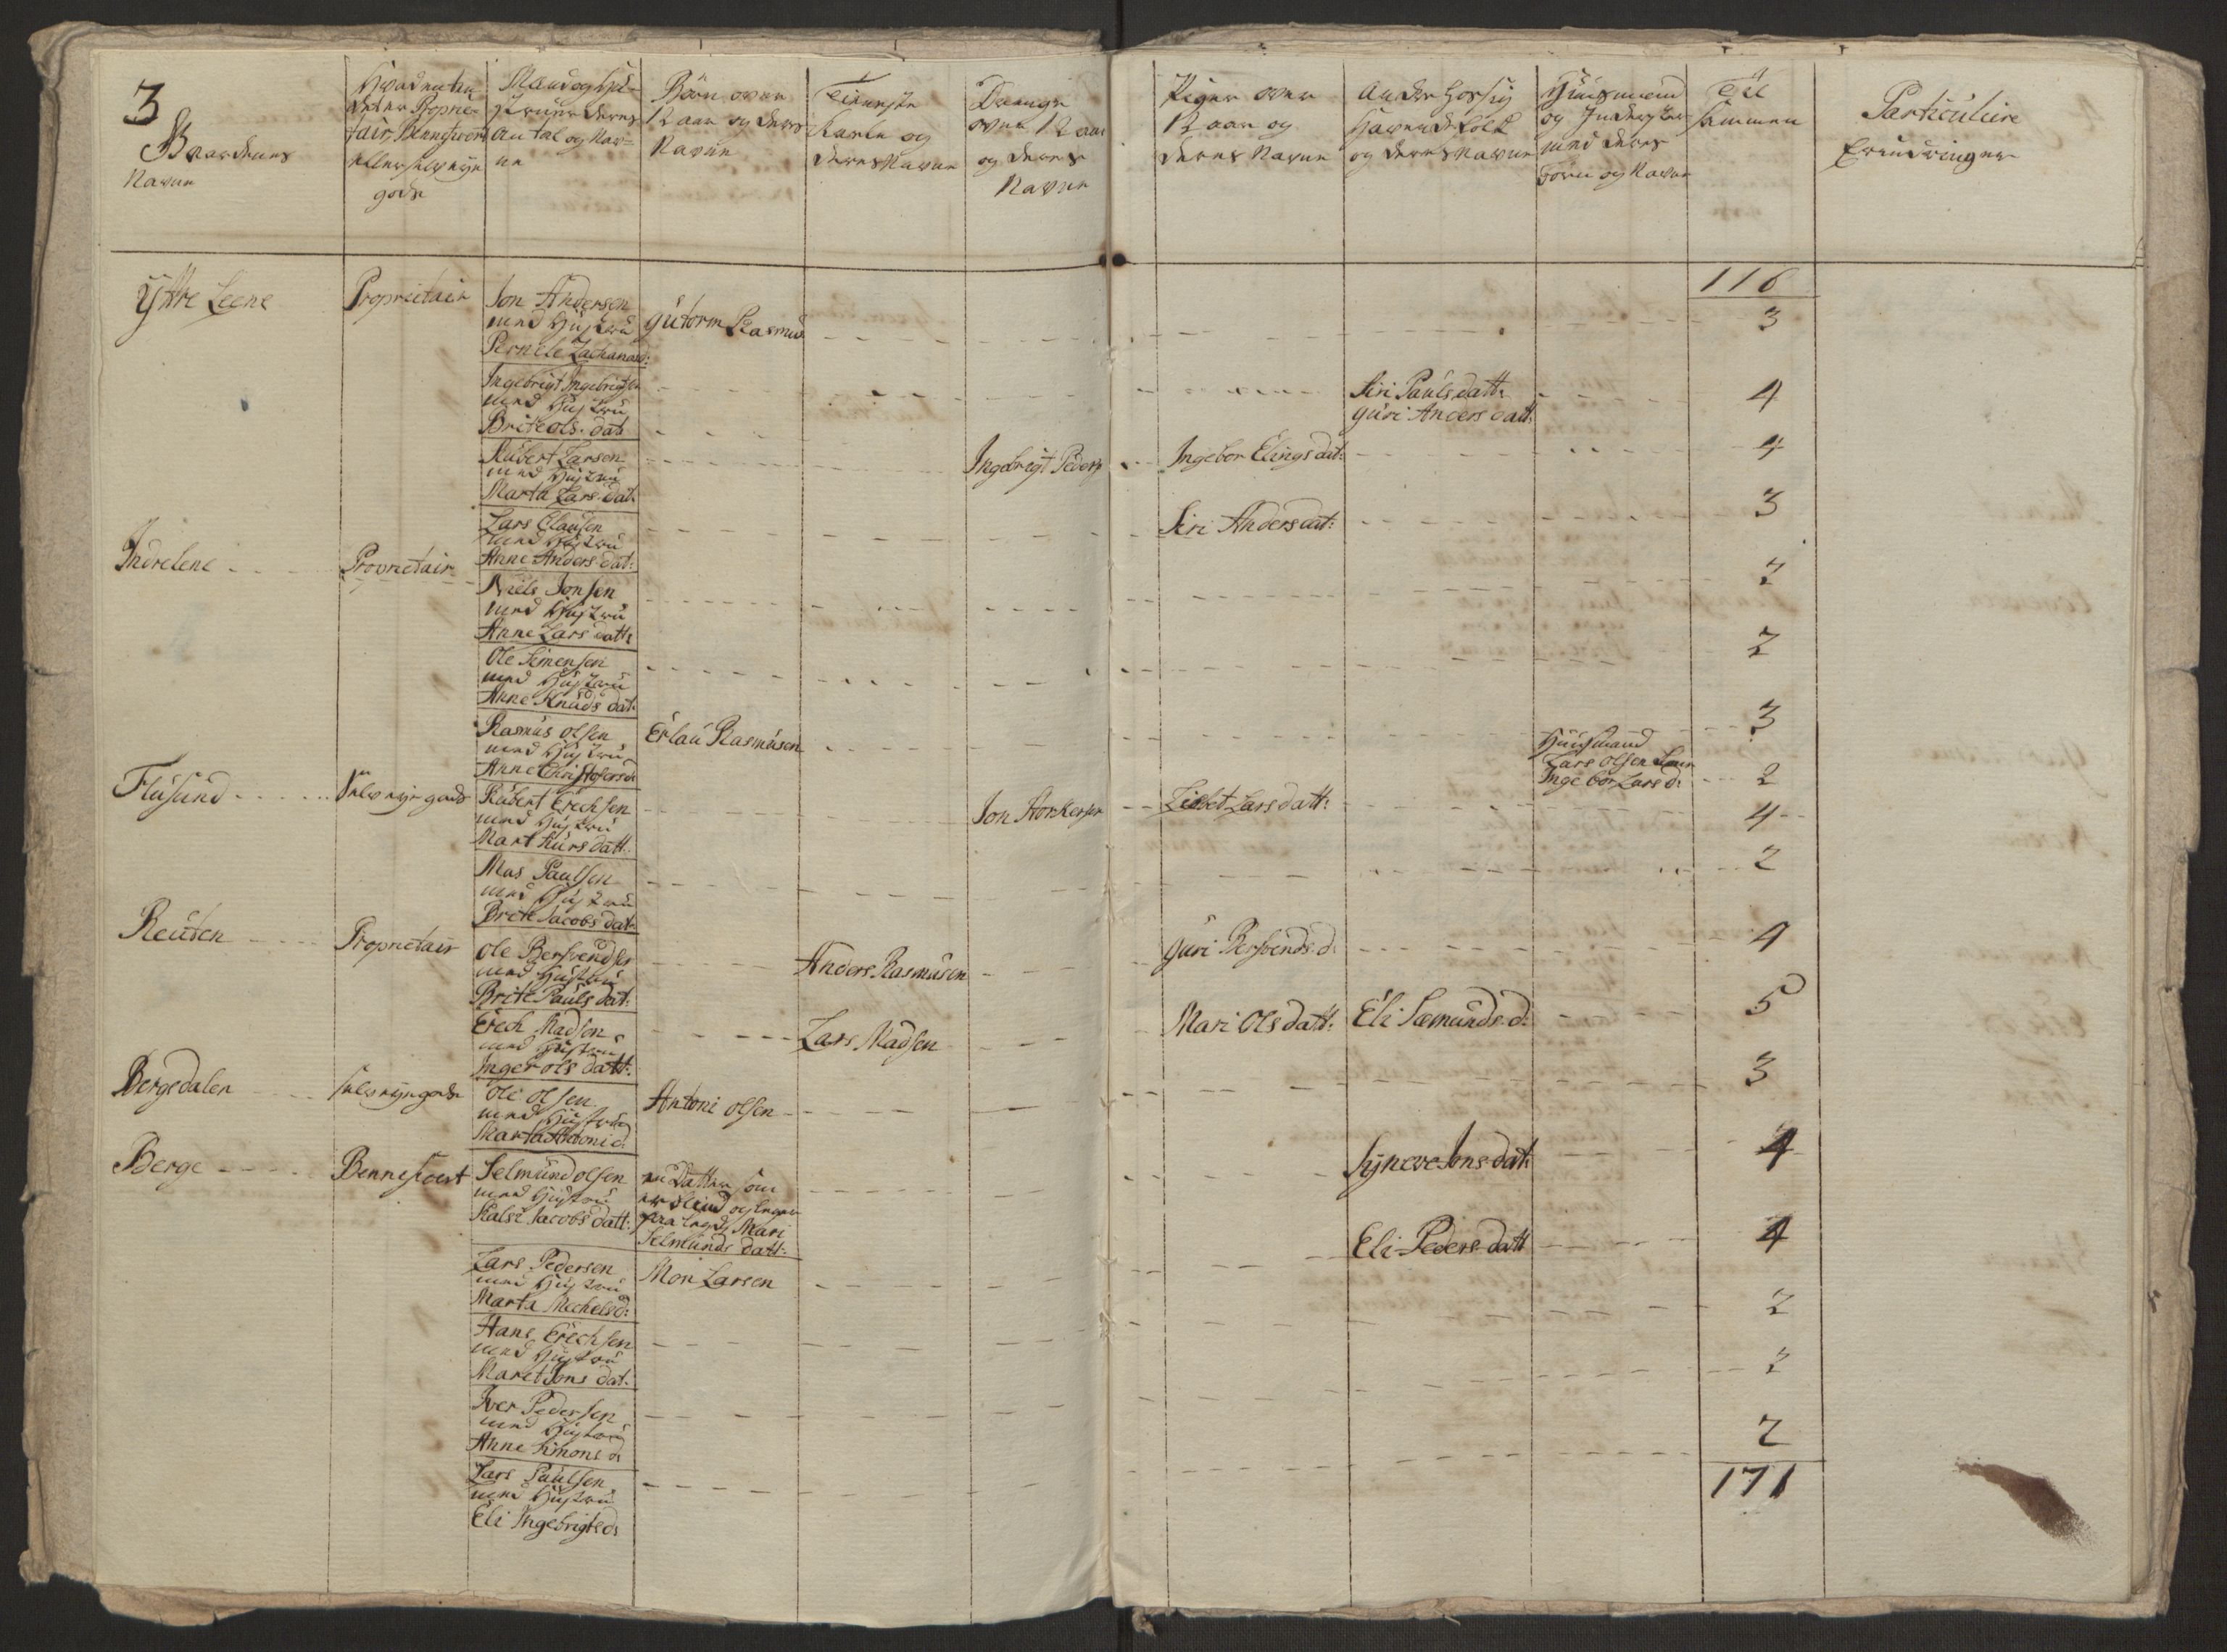 3
Gaardenes
Navne
Hvad enten
det er Proprie-
tair, Bennefioert
eller selv eyer
gods
Mænd og Hu-
struer deres
antal og Nav-
ne
Börn over
12 aar og deres
Navne
Tieneste
Karle og
deres Navne
Drenge
over 12 aar
og deres
Navne
Piger over
12 aar og
deres Navne
Andre
og deres Navne
Huusmænd
og
med deres
og Navne
Til
sammen
Particuliere
Erindringer
116
Ÿttre Leene
Proprietair
Jon Andersen
med Hustru
Pernele Zacharias d:
Gutorm Rasmus
3
Ingebrigt Ingebrigtsen
med Hustru
Brite ols. dat
Siri Pauls datt:
Guri Anders datt:
4
Rubert Larsen
med Hustru
Marta Lars dat:
Ingebrigt Peders
Ingebor Elings dat:
4
Lars Clausen
med Hustru
Anne Anders dat:
Siri Anders dat:
3
Indrelene
Proprietair
Niels Jonsen
med Hustru
Anne Lars datt:
2
Ole Simensen
med Hustru
Anne Knuds dat:
2
Rasmus olsen
med Hustru
Anne Christofers d:
Erlau Rasmusen
3
Huusmand
Lars olsen
Inge bor Lars d:
2
Flusund
selv eyer gods
Rubert Erechsen
med Hustru
Mart Kurs datt.
Jon
Lisbet Lars datt:
4
Mas Paulsen
med Hustru
Brite Jacobs dat:
2
Reuten
Proprietair
Ole Bersvendsen
med Hustru
Brite Pauls dat:
Anders Rasmusen
Guri Bersvends. d:
4
Erech Madsen
med Hustru
Inger ols datt:
Lars Madsen
Mari Ols datt:
Eli Sæmunds. d:
5
Bergsdalen
selv eyer gods
Ole olsen
med Hustru
Marta Antoni d:
Antoni olsen
3
Berge
Bennefioert
Selmund olsen
med Hustru
Kalsi Jacobs datt:
en Datter som
er blind og
Mari
Selmunds datt:
Syneve Jons dat:
4
Lars Pedersen
med Hustru
Marta Mechels d:
Mon Larsen
Eli Peders datt
4
Hans Erechsen
med Hustru
Maret Jons dat:
2
Iver Pedersen
med Hustru
Anne Simons d:
2
Lars Paulsen
med Hustru
Eli Ingebrigts d:
2
171